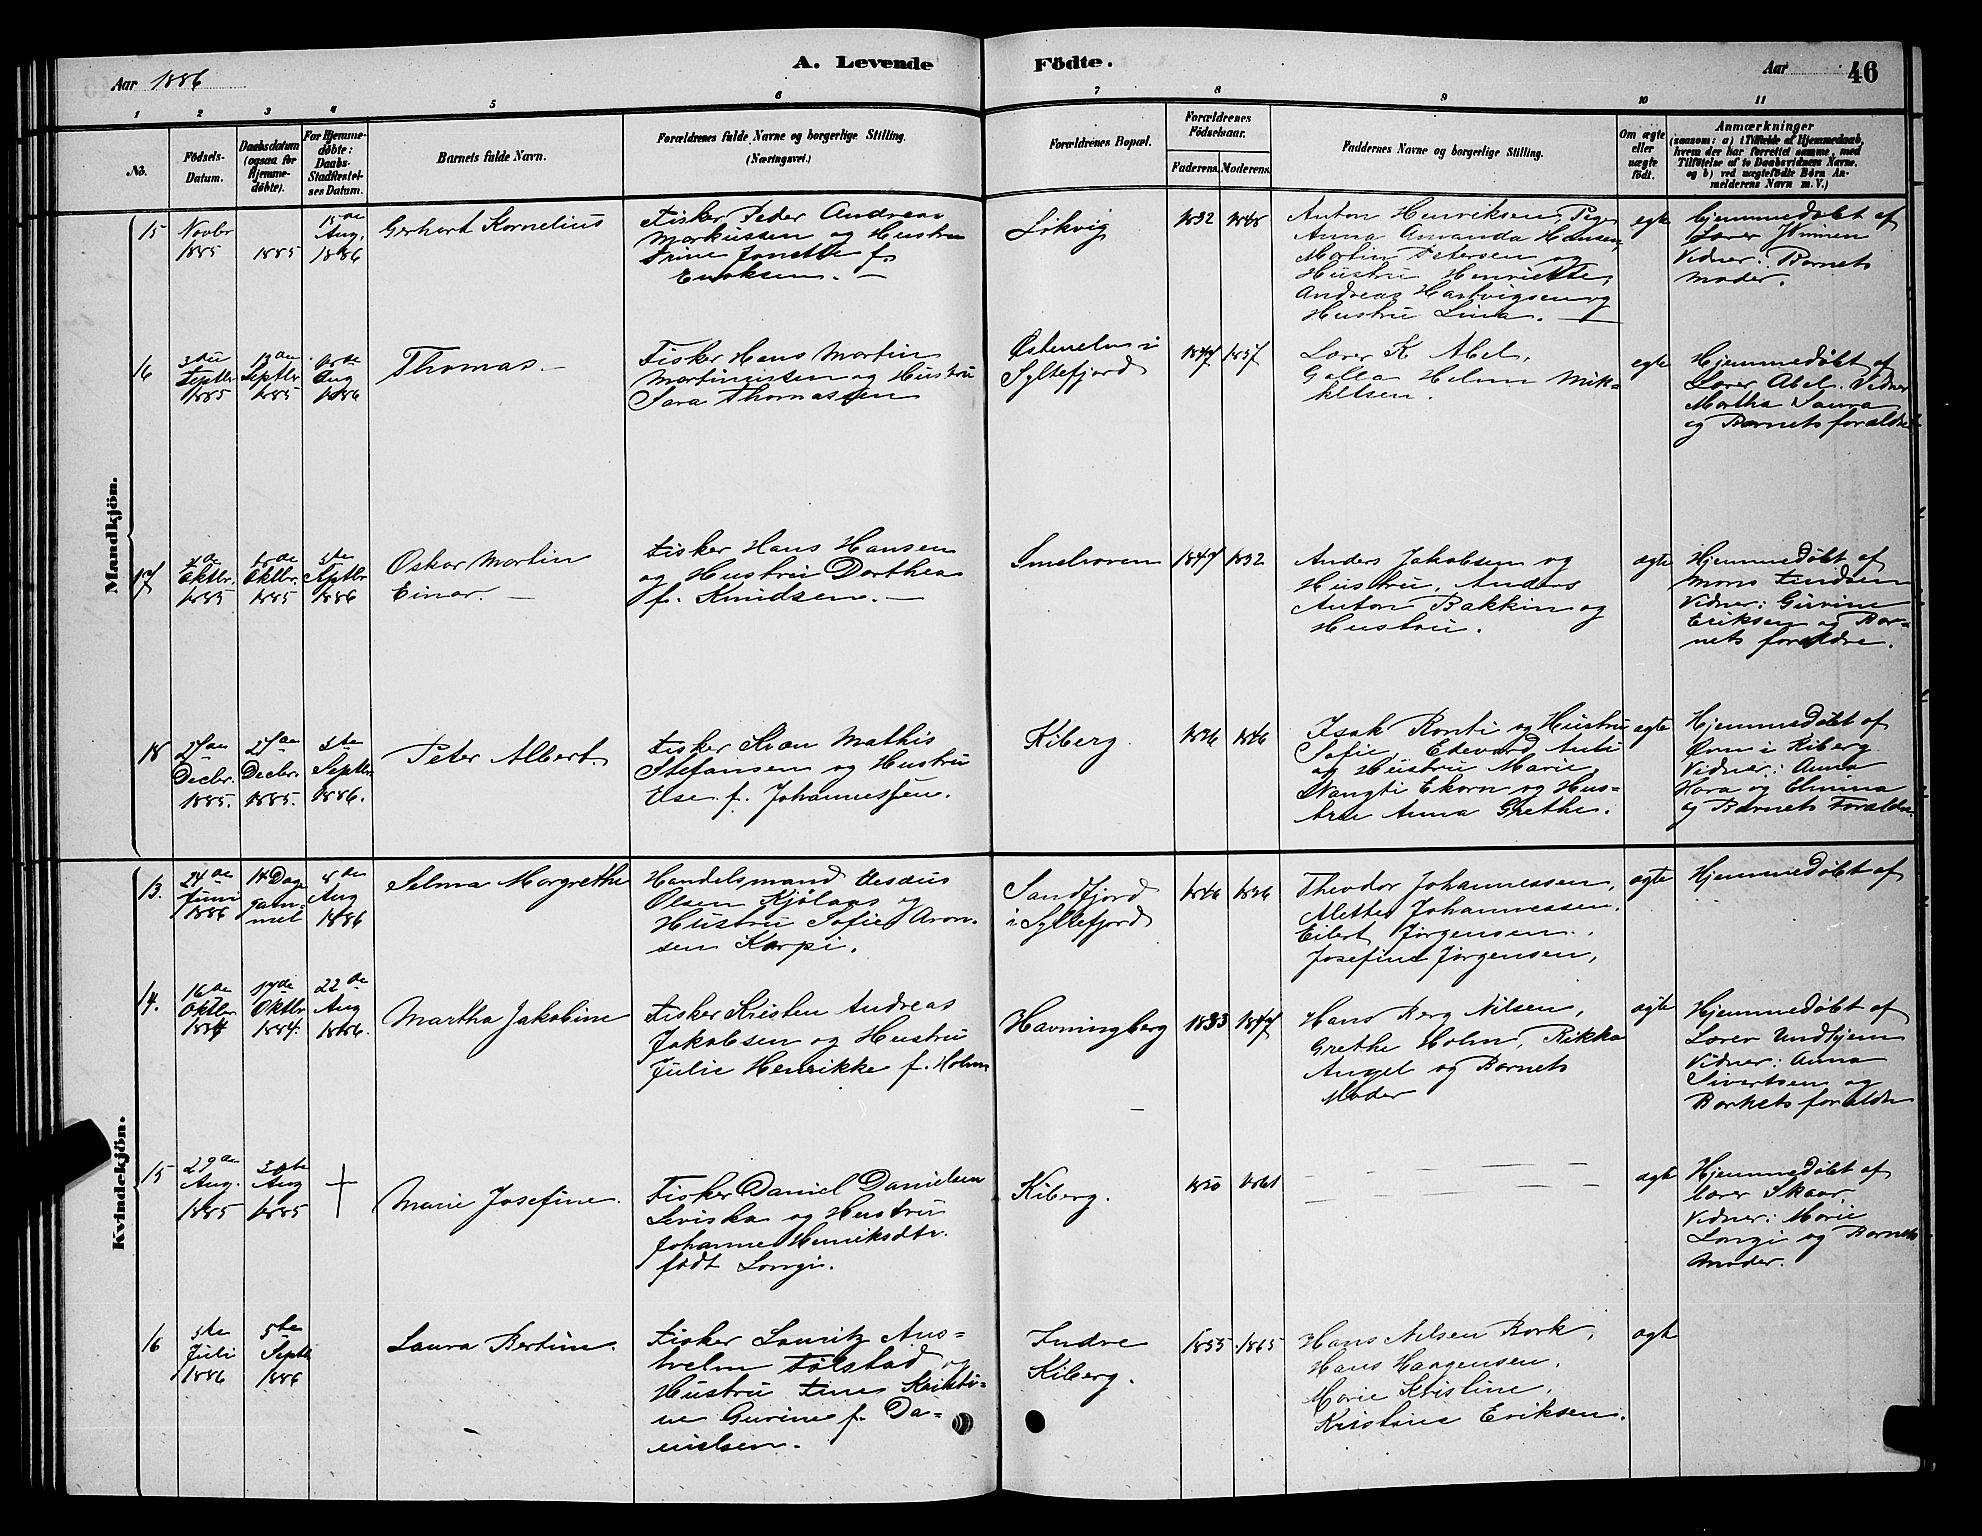 Aar 1886
A. Levende
Födte.
Aar
46
1 2 3 4 5 6 7 8 9 10 11
No.
Fødsels-Datum.
Daabsdatum (ogsaa for Hjemmedøbte).
For Hjemmedøbte: Daabs-Stadfæstelses Datum.
Barnets fulde Navn.
Forældrenes fulde Navne og borgerlige Stilling.
(Næringsvei.)
Forældrenes Bopæl.
Forældrenes Fødselsaar.
Faderens. Moderens.
Faddernes Navne og borgerlige Stilling.
Om ægte eller uægte født.
Anmærkninger
(saasom: a) i Tilfælde af Hjemmedaab,
hvem der har forrettet samme, med
Tilføielse af to Daabsvidners Navne,
og b) ved uægtefødte Børn Anmelderens Navn m. V.)
Mandkjön.
15 Novbr 1885
1885
15de Aug. 1886
Gerhart Kornelius
Fisker Peder Andreas
Markussen og Hustru
Trine Jonette f.
Enoksen. —
1832 1848
Anton Henriksen, Pige
Anna Amanda Hansen,
Martin Petersen og
Hustru Henriette,
Andreas Hartvigsen og
Hustru Lina. —
egte
hjemmedøbt af
Lærer
Vidner: Barnets
moder.
16
3die Septbr 1885
13de Septbr 1885
Aug 1886
Thomas. —
Fisker Hans Martin
og Hustru
Sara Thomassen
Syltefjord
1847 1857
Lærer K. Abel,
Helm Mikkelsen.
egte
Hjemmedøbt af
Lærer Abel. Vidner
Martha Laura
og Barnets forældre
17
Oktbr. 1885
Oktbr. 1885
5te Septbr 1886
Oskar Martin
Einar. —
Fisker Hans Hansen
og Hustru Dorthea
f. Knudsen. —
Smelroren
1847 1832
Anders Jakobsen og
Hustru, Anders
Anton Bakkin og
Hustru.
ægte
Hjemmedøbt af
Mons
Vidner:
Eriksen og Barnets
forældre.
18
27de Decbr. 1885.
27de Decbr. 1885.
5te Septbr 1886.
Peter Albert.
Fisker Ivan Mathis
Stefansen og Hustru
Else f. Johannessen.
Kiberg.
1846
Isak Ronti og Hustru
Sofie, Edevard Anti
og Hustru Marie,
Ekorn og Hustru
Anna Grethe.
ægte
Hjemmedøbt af
i Kiberg
Vidner: Anna
og Elmina
og Barnets Forældre.
Kvindekjön.
13.
24de Juni 1886
14 Dage gammel
8de Aug 1886
Selma Margrethe
Handelsmand
Olsen Kjølaas og
Hustru Sofie Aronsen
Karpi.
Sandfjord
i Syltefjord
1846
Theodor Johannessen,
Mette Johannessen.
Eilert Jørgensen,
Josefine Jørgensen,
ægte
Hjemmedøbt af
14.
16de Oktbr 1884
17de Oktbr 1884.
22de Aug 1886.
Martha Jakobine
Fisker Kristen Andreas
Jakobsen og Hustru
Julie Henrikke f. Holm
Havningberg
1833 1847
Hans Berg Nilsen,
Grethe Holm, Rikka
Angel og Barnets
Moder
ægte
Hjemmedøbt af
Lærer Undhjem
Vidner: Anna
Sivertsen og
Barnets forældre
15
29de Aug. 1885
30te Aug 1885
†
Marie Josefine.
Fisker Daniel Danielsen
Leviska og Hustru
Johanne Henriksdtr.
født Longi.
Kiberg.
1850 1861
ægte
Hjemmedøbt af
lærer Skaar,
Vidner: Marie
Longi og Barnets
moder.
16
5te Juli 1886
5te Septbr 1886
Laura Bertine.
Fisker Lauritz Anshelm
Følstad og
Hustru Tine Kristine
Gurine f. Danielsen.
Indre
Kiberg.
1855 1865
Hans Nilsen Bork,
Hans Haagensen,
Marie Kristine,
Kristine Eriksen.
ægte